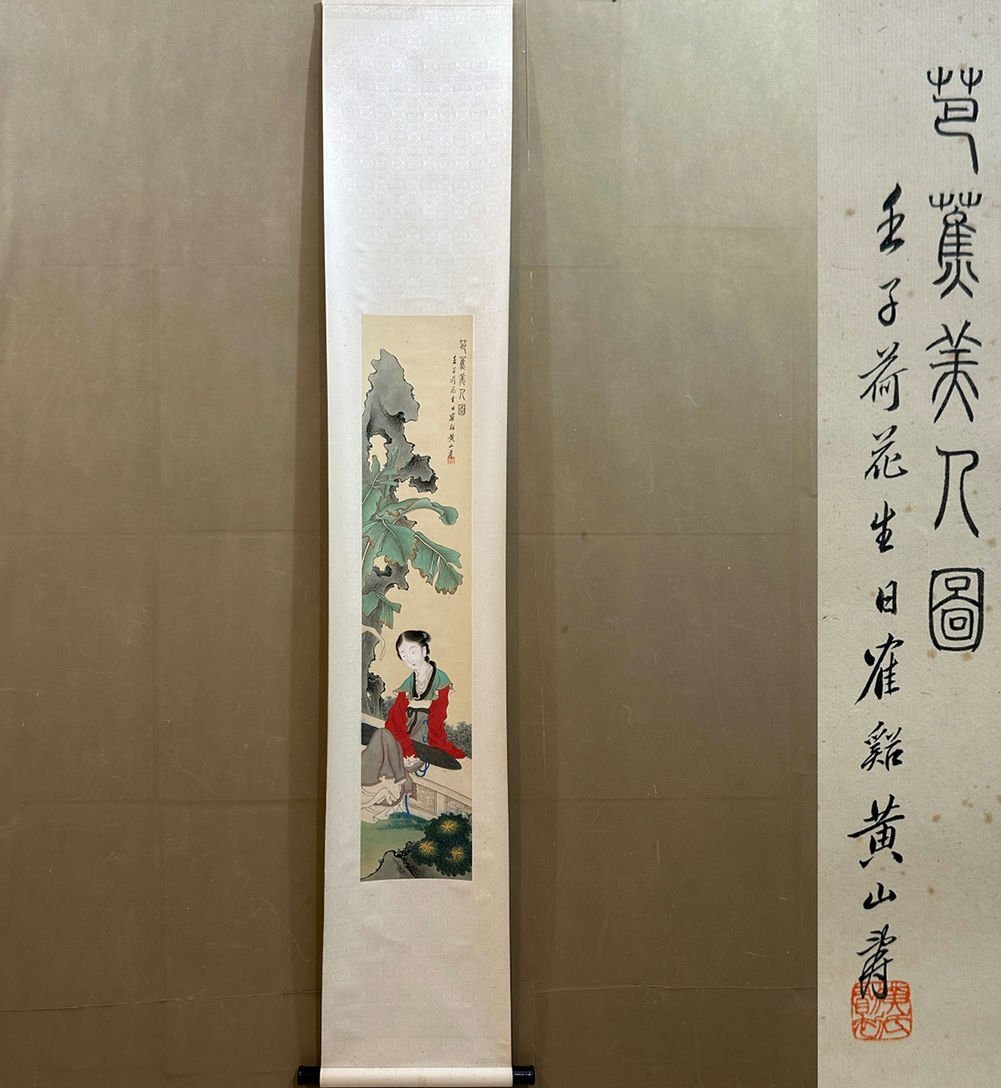 芭蕉美人圖
壬子荷花生日隺谿黄山壽